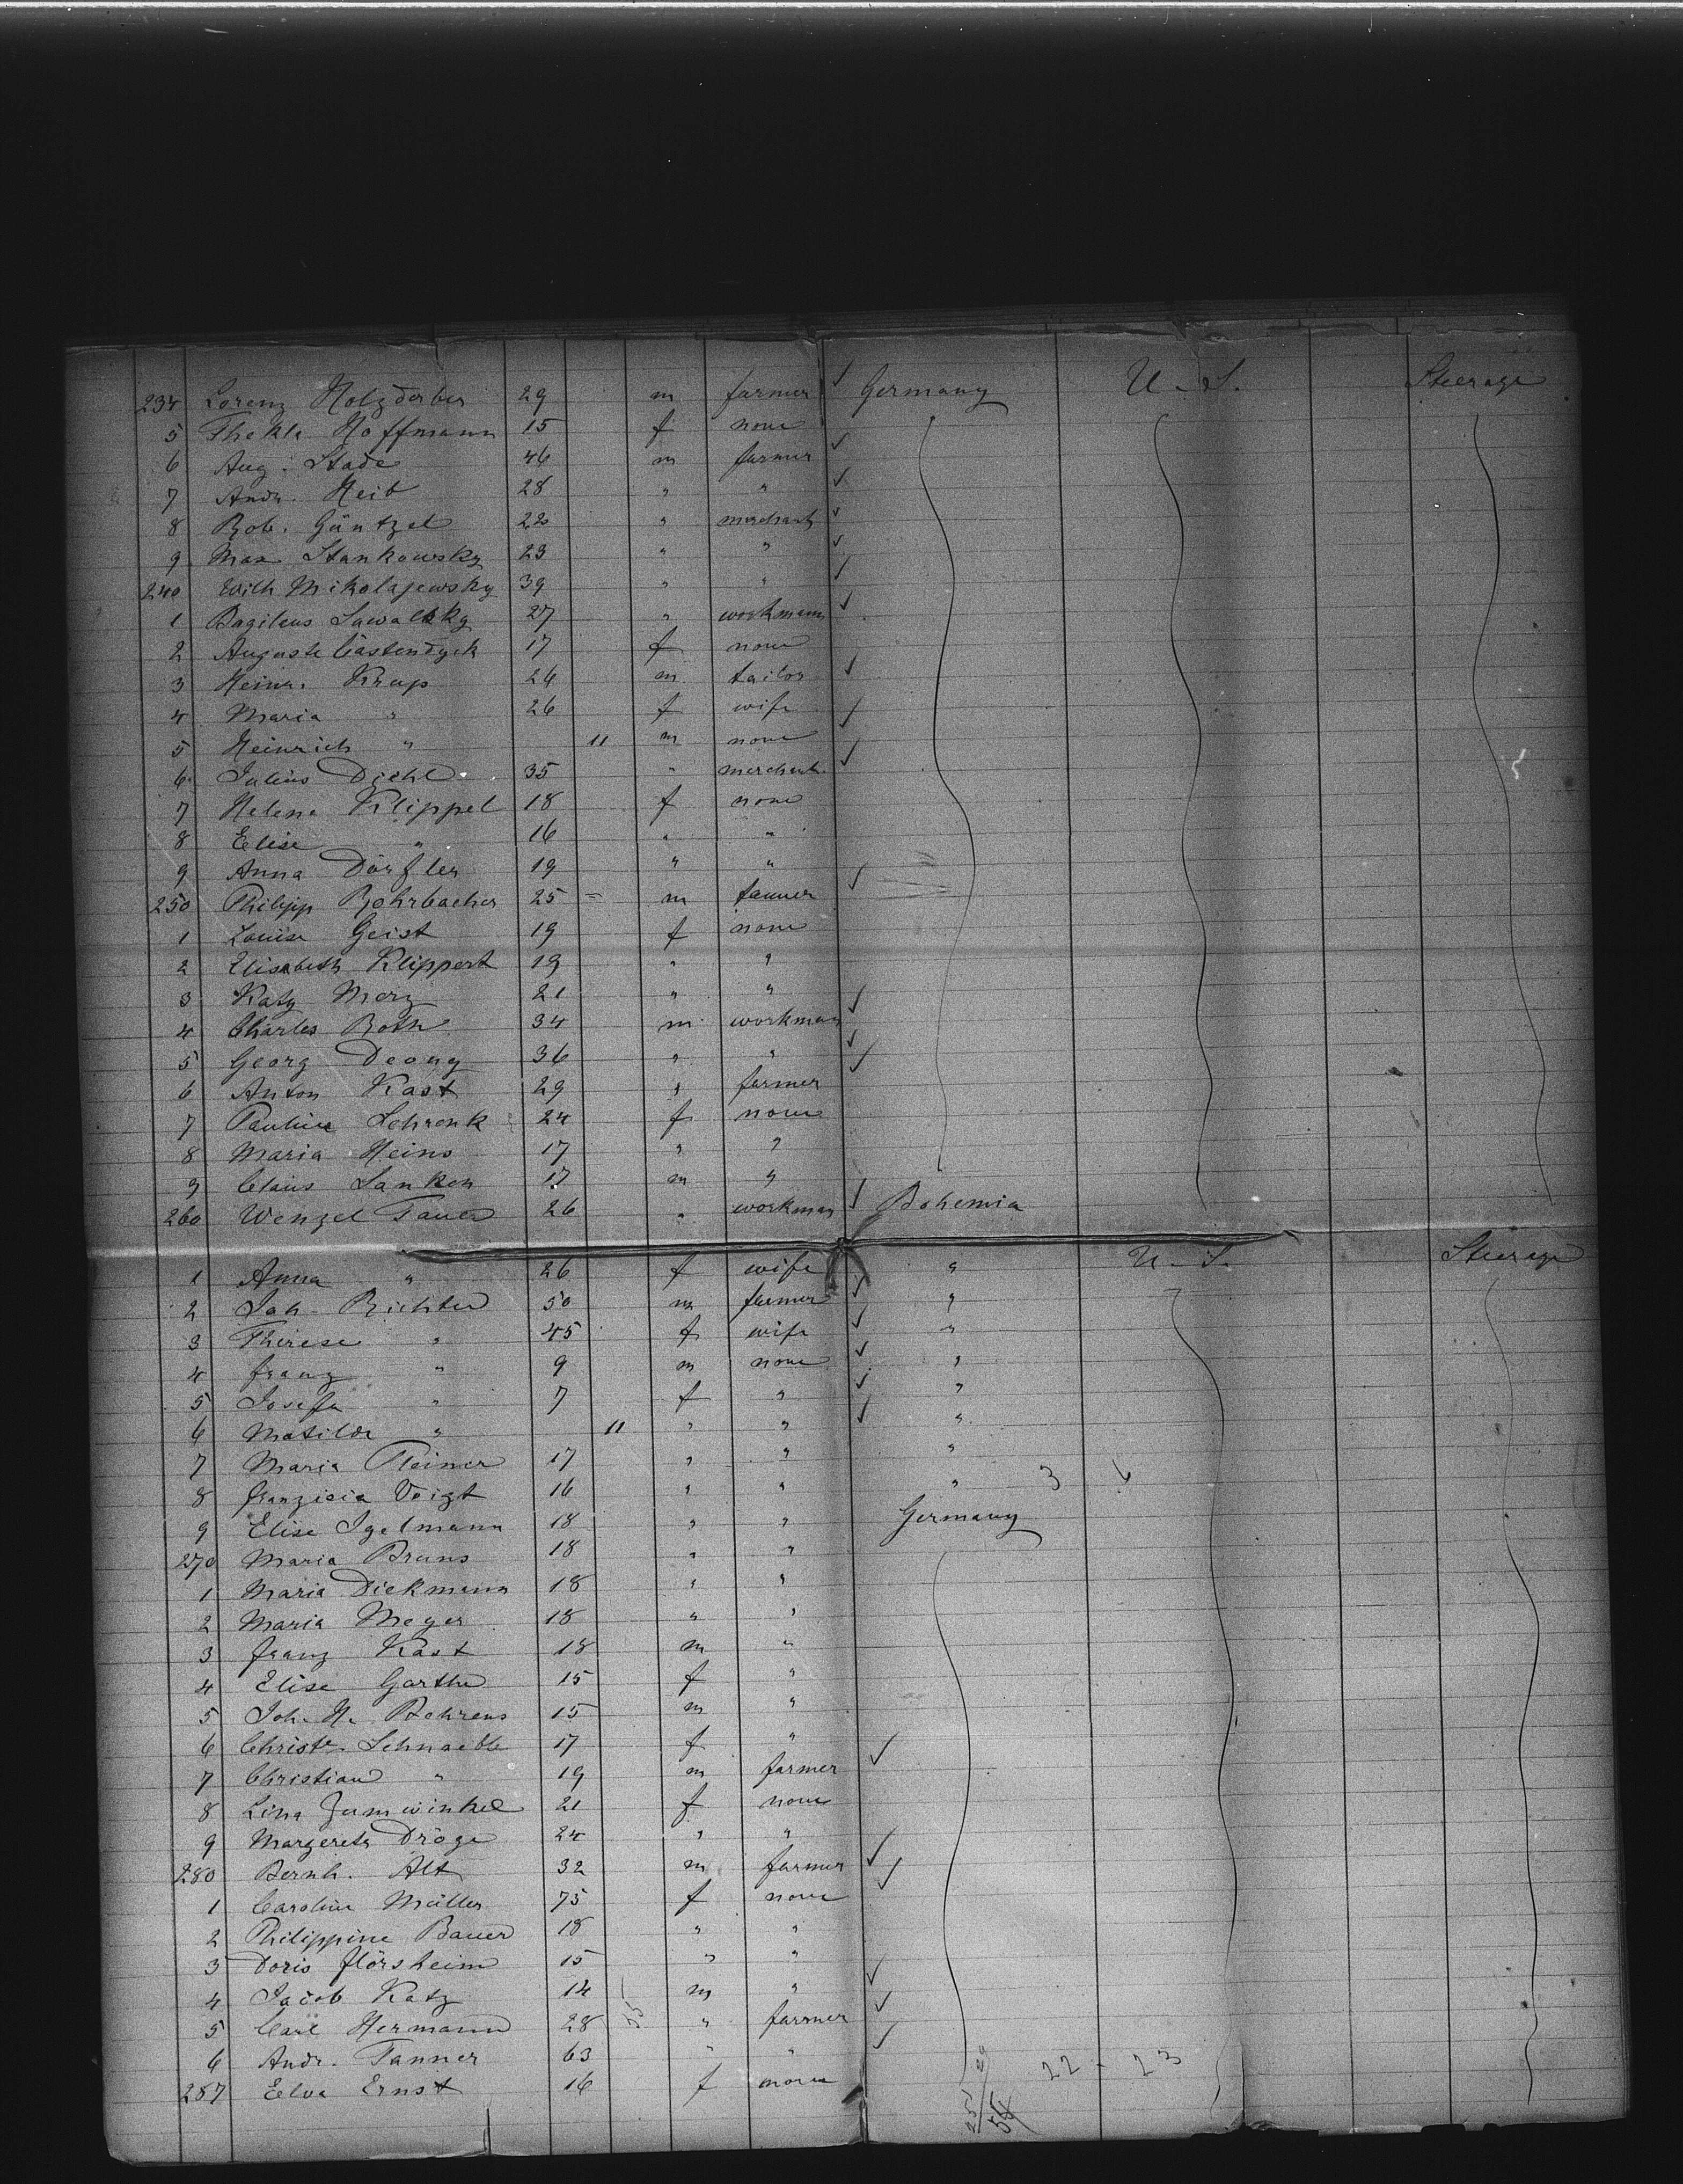 234 Lorenz Holzderber 29 m farmer ✓ Germany U. S. Steerage
5 Thekla Hoffmann 15 f none
6 Aug. Stade 46 m farmer ✓
7 Andr. Heib 28 " " ✓
8 Rob. Güntzel 22 " merchant ✓
9 Max Stankowsky 23 " " ✓
240 Wilh Mikolajewsky 39 " " ✓
1 27 " workman ✓
2 Auguste Castendyck 17 f none
3 Heinr. Krap 26 m tailor ✓
4 Maria " 26 f wife ✓
5 Heinrich " 11 m none ✓
6 Julius Diehl 35 " merchant ✓
7 Helene Klippel 18 f none
8 Elise " 16 " "
9 Anna Dörfler 19 " "
250 Philipp Rohrbacher 25 = m tanner ✓
1 Louise Geist 19 f none
2 Elisabeth Klippert 19 " "
3 Katy Merz 21 " "
4 Charles Roth 34 m workman ✓
5 Georg Deong 36 " " ✓
6 Anton Kast 29 " farmer ✓
7 Pauline Schrenk 24 f none
8 Maria Heins 17 " "
9 Claus Lanken 17 m "
260 Wenzel Tauer 26 " workman ✓ Bohemia
1 Anna " 26 f wife " U. S. Steerage
2 Joh. Richter 50 m farmer ✓ "
3 Therese " 45 f wife ✓ "
4 Franz " 9 m none ✓ "
5 Josefa " 7 f " ✓ "
6 Matilde " 11 " " ✓ "
7 Maria Pleiner 17 " " "
8 Franzisca Voigt 16 " " " 3 6
9 Elise Igelmann 18 " " Germany
270 Maria Bruns 18 " "
1 Maria Diekmann 18 " "
2 Maria Meyer 18 " "
3 Franz Kast 18 m "
4 Elise Garthe 15 f "
5 Joh. H. Behrens 15 m "
6 Christe. Schnaeble 17 f "
7 Christian " 19 m farmer ✓
8 Lina Zumwinkel 21 f none
9 Margareth Dröge 24 " "
280 Bernh. Alt 32 m farmer ✓
1 Caroline Müller 75 f none ✓
2 Philippine Bauer 18 " "
3 Doris Flörsheim 15 " "
4 Jacob Katz 14 m " ✓
5 Carl Hermann 28 " farmer ✓
6 Andr. Tanner 63 " " ✓
287 Elva Ernst 16 f none 22 - 23